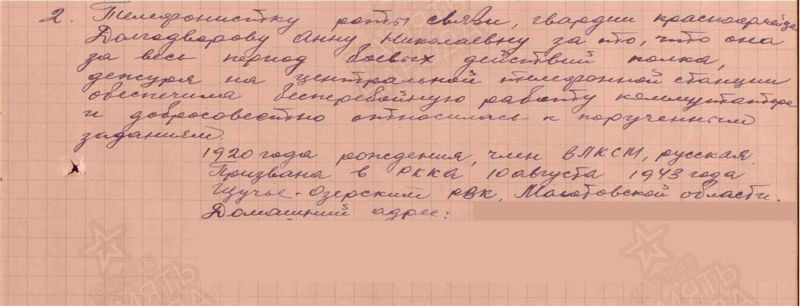 2. Телефонистку роты связи, гвардии красноармейца
Долгодворову Анну Николаевну за то, что она
за весь период боевых действий полка,
дежуря на центральной телефонной станции
обеспечила бесперебойную работу коммутатора
и добросовестно относилась к порученным
заданиям.
1920 года рождения, член ВЛКСМ, русская.
Призвана в РККА 10 августа 1943 года
Щучье-Озерским РВК, Молотовской области.
Домашний адрес:
ПАМЯТЬ